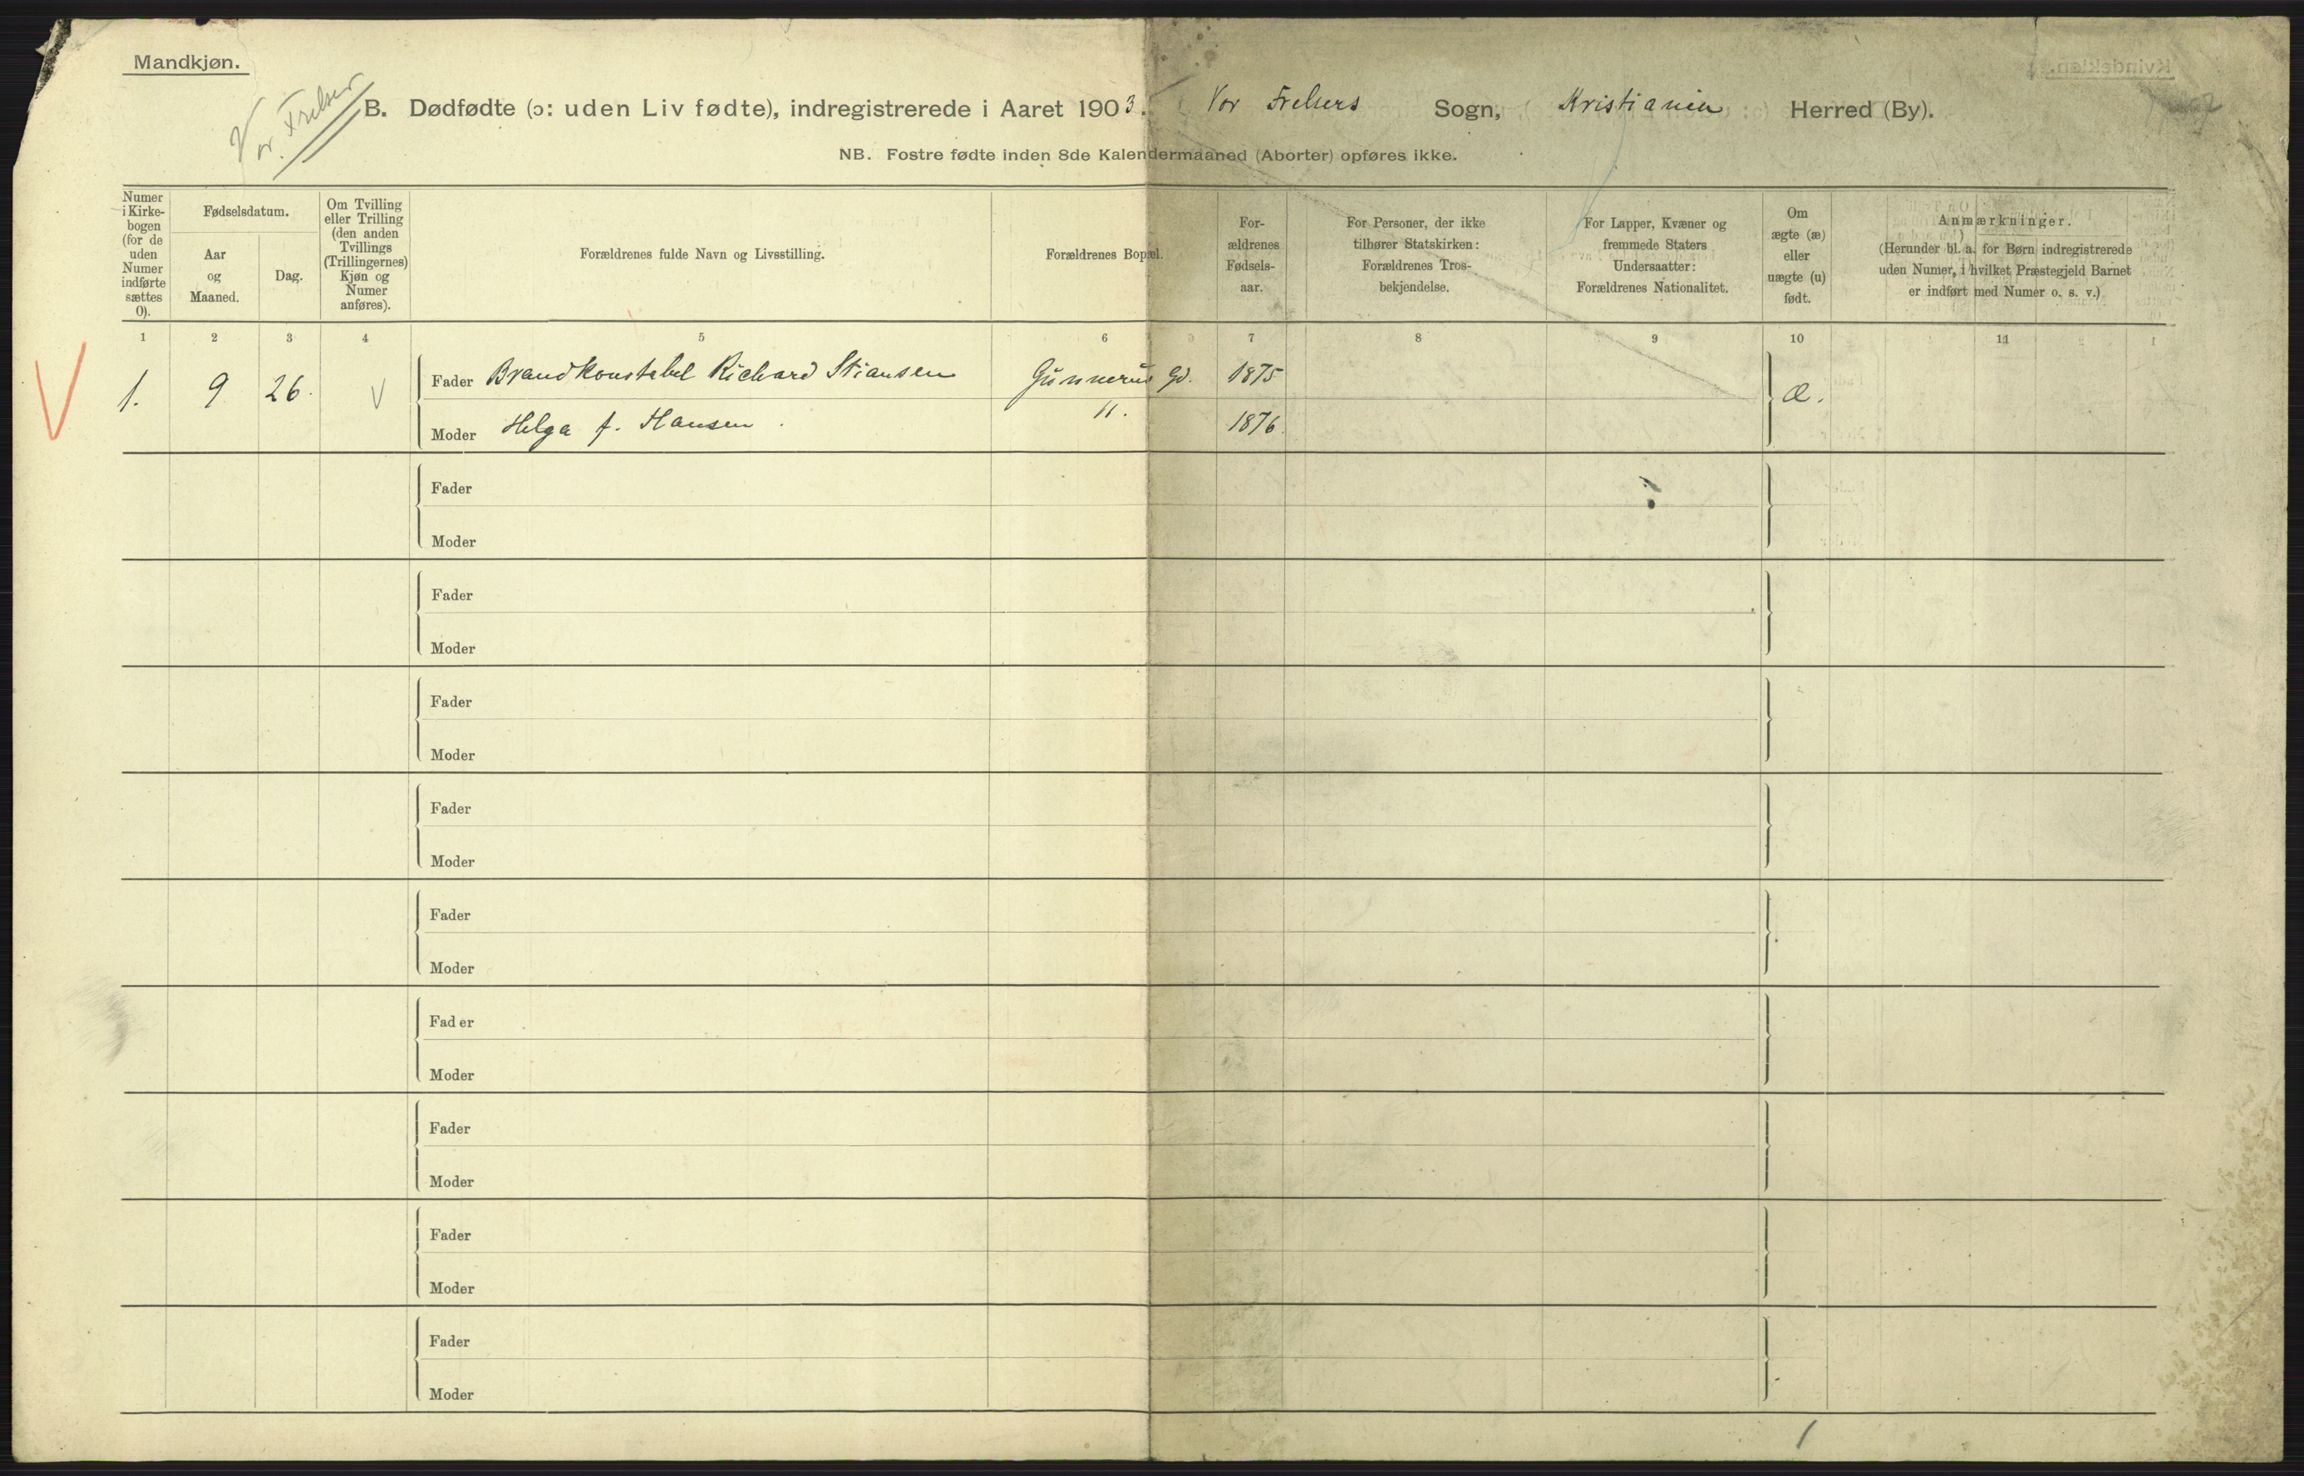 Mandkjøn.
Vor Frelser
B. Dødfødte (ɔ: uden Liv fødte), indregistrerede i Aaret 1903. Vor Frelsers Sogn, Kristiania Herred (By).
NB. Fostre fødte inden 8de Kalendermaaned (Aborter) opføres ikke.
Numer i Kirkebogen (for de uden Numer indførte sættes 0).
Fødselsdatum.
Aar og Maaned.
Dag.
Om Tvilling eller Trilling (den anden Tvillings (Trillingernes) Kjøn og Numer anføres).
Forældrenes fulde Navn og Livsstilling.
Forældrenes Bopæl.
For-
ældrenes
Fødsels-
aar.
For Personer, der ikke
tilhører Statskirken:
Forældrenes Tros-
bekjendelse.
For Lapper, Kvæner og
fremmede Staters
Undersaatter:
Forældrenes Nationalitet.
Om
ægte (æ)
eller
uægte (u)
født.
Anmærkninger.
(Herunder bl. a. for Børn indregistrerede
uden Numer, i hvilket Præstegjeld Barnet
er indført med Numer o. s. v.)
1 2 3 4 5 6 7 8 9 10 11
V 1. 9 26. V Fader Brandkonstabel Richard Stiansen Gunnerus Gd. 1875 Æ.
11.
Moder Helga f. Hansen. 1876
Fader
Moder
Fader
Moder
Fader
Moder
Fader
Moder
Fader
Moder
Fader
Moder
Fader
Moder
Fader
Moder
Fader
Moder
1